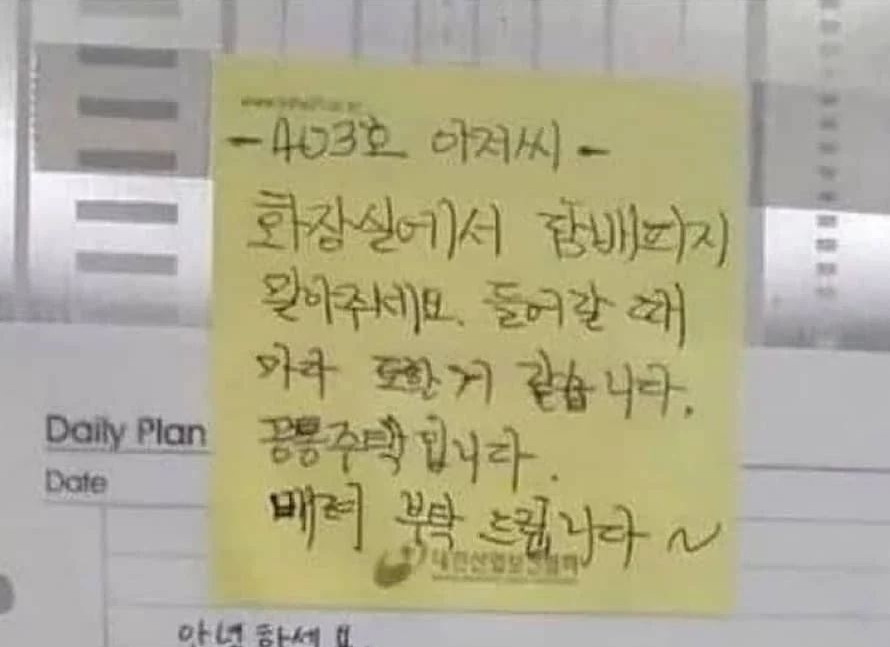 -403호 아저씨-
화장실에서 담배피지
말아주세요. 들어갈 때
마다 토할거 같습니다.
공통주택입니다.
배려 부탁 드립니다~
대한산업보건협회
Daily Plan
Date
안녕하세요.